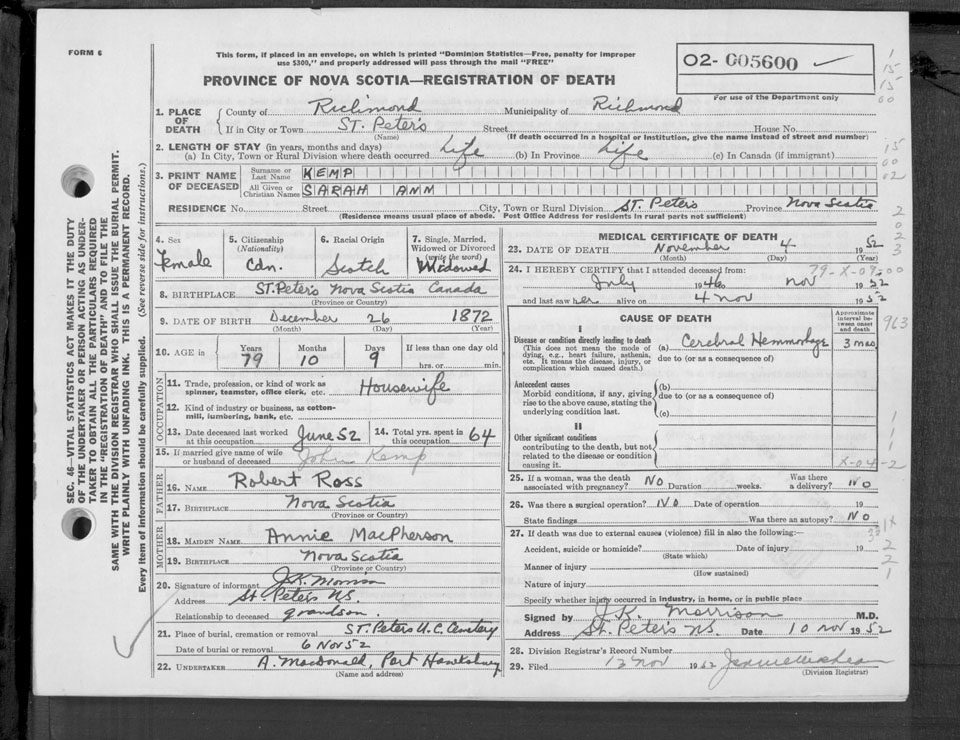 FORM 6
This form, if placed in an envelope, on which is printed "Dominion Statistics—Free, penalty for improper
use $300," and properly addressed will pass through the mail "FREE"
PROVINCE OF NOVA SCOTIA—REGISTRATION OF DEATH
02- 005600
For use of the Department only
1. PLACE OF DEATH County of Richmond Municipality of Richmond
If in City or Town ST. Peter's Street House No.
(Name) (If death occurred in a hospital or institution, give the name instead of street and number)
2. LENGTH OF STAY (in years, months and days)
(a) In City, Town or Rural Division where death occurred Life (b) In Province Life (c) In Canada (if immigrant)
3. PRINT NAME OF DECEASED Surname or Last Name KEMP
All Given or Christian Names SARAH ANN
RESIDENCE No. Street City, Town or Rural Division ST. Peters Province Nova Scotia
(Residence means usual place of abode. Post Office Address for residents in rural parts not sufficient)
4. Sex Female
5. Citizenship (Nationality) Cdn.
6. Racial Origin Scotch
7. Single, Married, Widowed or Divorced (write the word) Widowed
8. BIRTHPLACE ST. Peter's Nova Scotia Canada
(Province or Country)
9. DATE OF BIRTH December 26 1872
(Month) (Day) (Year)
10. AGE in Years 79 Months 10 Days 9 If less than one day old hrs. or min.
OCCUPATION
11. Trade, profession, or kind of work as spinner, teamster, office clerk, etc. Housewife
12. Kind of industry or business, as cotton-mill, lumbering, bank, etc.
13. Date deceased last worked at this occupation June 52 14. Total yrs. spent in this occupation 64
15. If married give name of wife or husband of deceased John Kemp
FATHER
16. NAME Robert Ross
17. BIRTHPLACE Nova Scotia
(Province or Country)
MOTHER
18. MAIDEN NAME Annie MacPherson
19. BIRTHPLACE Nova Scotia
(Province or Country)
20. Signature of informant J.K. Morrison
Address St. Peter's N.S.
Relationship to deceased grandson.
21. Place of burial, cremation or removal ST. Peters U.C. Cemetery
Date of burial or removal 6 Nov 52
22. UNDERTAKER A. MacDonald, Port Hawksbury
(Name and address)
MEDICAL CERTIFICATE OF DEATH
23. DATE OF DEATH November 4 1952
(Month) (Day)
24. I HEREBY CERTIFY that I attended deceased from:
July 1946 Nov 1952
and last saw her alive on 4 Nov 1952
CAUSE OF DEATH
Approximate interval between onset and death
I
Disease or condition directly leading to death (a) Cerebral Hemmorhage 3 mos.
(This does not mean the mode of dying, e.g., heart failure, asthenia, etc. It means the disease, injury, or complication which caused death.)
due to (or as a consequence of)
Antecedent causes
Morbid conditions, if any, giving rise to the above cause, stating the underlying condition last.
(b)
due to (or as a consequence of)
(c)
II
Other significant conditions
contributing to the death, but not related to the disease or condition causing it.
X-04-2
963
25. If a woman, was the death associated with pregnancy? NO Duration weeks. Was there a delivery? NO
26. Was there a surgical operation? NO Date of operation 19
State findings Was there an autopsy? NO
27. If death was due to external causes (violence) fill in also the following:—
Accident, suicide or homicide? Date of injury 19
(State which)
Manner of injury
(How sustained)
Nature of injury
Specify whether injury occurred in industry, in home, or in public place
Signed by J.K. Morrison M.D.
Address St. Peter's N.S. Date 10 Nov 1952
28. Division Registrar's Record Number
29. Filed 12 Nov 1952
(Division Registrar)
SEC. 46—VITAL STATISTICS ACT MAKES IT THE DUTY
OF THE UNDERTAKER OR PERSON ACTING AS UNDER-
TAKER TO OBTAIN ALL THE PARTICULARS REQUIRED
IN THE "REGISTRATION OF DEATH" AND TO FILE THE
SAME WITH THE DIVISION REGISTRAR WHO SHALL ISSUE THE BURIAL PERMIT.
WRITE PLAINLY WITH UNFADING INK. THIS IS A PERMANENT RECORD.
Every item of information should be carefully supplied. (See reverse side for instructions.)